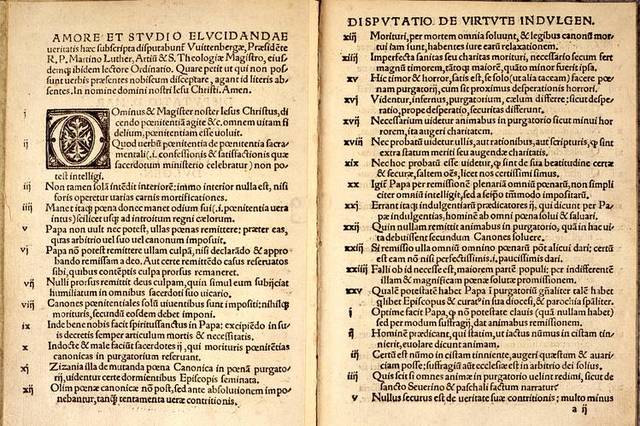 AMORE ET STVDIO ELVCIDANDAE
ueritatis hæc subscripta disputabunt Vuittenbergæ, Præsidēte
R. P. Martino Luther, Artiū & S. Theologiæ Magistro, eius-
demq̃ ibidem lectore Ordinario. Quare petit ut qui non pos-
sunt uerbis præsentes nobiscum disceptare, agant id literis ab-
sentes. In nomine domini nostri Iesu Christi. Amen.
i DOminus & Magister noster Iesus Christus, di
cendo pœnitentiā agite &c. omnem uitam fi
delium, pœnitentiam esse uoluit.
ij Quod uerbū pœnitentia de pœnitentia sacra
mentali (.i. confessionis & satisfactionis quæ
sacerdotum ministerio celebratur) non po-
test intelligi.
iij Non tamen solā intēdit interiorē: immo interior nulla est, nisi
foris operetur uarias carnis mortificationes.
iiij Manet itaq̃ pœna donec manet odium sui (.i. pœnitentia uera
intus) scilicet usq̃ ad introitum regni cælorum.
v Papa non uult nec potest, ullas pœnas remittere: præter eas,
quas arbitrio uel suo uel canonum imposuit.
vj Papa nō potest remittere ullam culpā, nisi declarādo & appro
bando remissam a deo. Aut certe remittēdo casus reseruatos
sibi, quibus contēptis culpa prorsus remaneret.
vij Nulli prorsus remittit deus culpam, quin simul eum subijciat
humiliatum in omnibus sacerdoti suo uicario.
viij Canones pœnitentiales solū uiuentibus sunt impositi: nihilq̃
morituris, secundū eosdem debet imponi.
ix Inde bene nobis facit spiritussanctus in Papa: excipiēdo in su-
is decretis semper articulum mortis & necessitatis.
x Indocte & male faciūt sacerdotes ij, qui morituris pœnitētias
canonicas in purgatorium reseruant.
xj Zizania illa de mutanda pœna Canonica in pœnā purgato-
rij, uidentur certe dormientibus Episcopis seminata.
xij Olim pœnæ canonicæ nō post, sed ante absolutionem impo-
nebantur, tanq̃ tentamenta ueræ contritionis.
DISPVTATIO DE VIRTVTE INDVLGEN.
xiij Morituri, per mortem omnia soluunt, & legibus canonū mor-
tui iam sunt, habentes iure earū relaxationem.
xiiij Imperfecta sanitas seu charitas morituri, necessario secum fert
magnū timorem, tātoq̃ maiorē, quāto minor fuerit ipsa.
xv Hic timor & horror, satis est, se solo (ut alia taceam) facere pœ-
nam purgatorij, cum sit proximus desperationis horrori.
xvj Videntur, infernus, purgatorium, cælum differre: sicut despe-
ratio, prope desperatio, securitas differunt.
xvij Necessarium uidetur animabus in purgatorio sicut minui hor
rorem, ita augeri charitatem.
xviij Nec probatū uidetur ullis, aut rationibus, aut scripturis, q̃ sint
extra statum meriti seu augendæ charitatis.
xix Nec hoc probatū esse uidetur, q̃ sint de sua beatitudine certæ
& securæ, saltem oēs, licet nos certissimi simus.
xx Igit Papa per remissionē plenariā omniū pœnarū, non simpli
citer omniū intelligit, sed a seipso tmmodo impositarū.
xxj Errant itaq̃ indulgentiarū prædicatores ij, qui dicunt per Pa-
pæ indulgentias, hominē ab omni pœna solui & saluari.
xxij Quin nullam remittit animabus in purgatorio, quā in hac ui-
ta debuissent secundum Canones soluere.
xxiij Si remissio ulla omniū omnino pœnarū pōt alicui dari; certū
est eam nō nisi perfectissimis .i. paucissimis dari.
xxiiij Falli ob id necesse est, maiorem partē populi: per indifferentē
illam & magnificam pœnæ solutæ promissionem.
xxv Qualē potestatē habet Papa ī purgatoriū gñaliter talē habet
q̃libet Episcopus & curat' in sua diocesi, & parochia spāliter.
j Optime facit Papa, q̃ nō potestate clauis (quā nullam habet)
sed per modum suffragij, dat animabus remissionem.
ij Hominē prædicant, qui statim, ut iactus nūmus in cistam tin-
nierit, euolare dicunt animam.
iij Certū est nūmo in cistam tinniente, augeri quæstum & auari-
ciam posse; suffragiū aūt ecclesiæ est in arbitrio dei solius.
iiij Quis scit si omnes animæ in purgatorio uelint redimi, sicut de
sancto Seuerino & paschali factum narratur
v Nullus securus est de ueritate suæ contritionis; multo minus
a ij